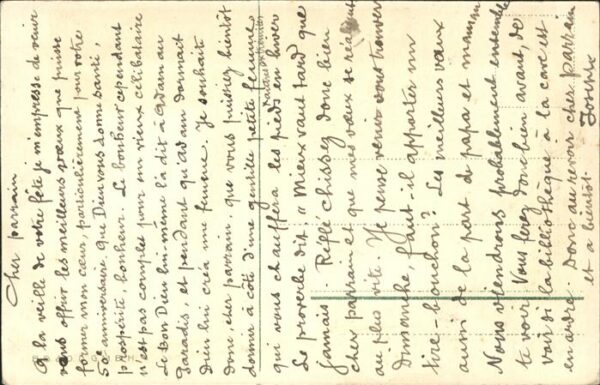 Cher parrain
A la veille de votre fête je m'empresse de venir
vous offrir les meilleurs vœux que puisse
former mon cœur, particulièrement pour votre
50e anniversaire. Que Dieu vous donne santé,
prospérité, bonheur. Le bonheur cependant
n'est pas complet pour un vieux célibataire
Le bon Dieu lui-même l'a dit à Adam au
Paradis, et pendant qu'Adam dormait
Dieu lui créa une femme. Je souhaite
donc, cher parrain, que vous puissiez bientôt
dormir à côté d'une gentille petite femme
qui vous chauffera les pieds en hiver
Le proverbe dit, « Mieux vaut tard que
jamais. Réfléchissez donc bien
cher parrain et que mes vœux se réalisent
au plus vite. Je pense venir vous trouver
Dimanche, faut-il apporter un
tire-bouchon? Les meilleurs vœux
aussi de la part de papa et maman
Nous viendrons probablement ensemble
te voir. Vous ferez donc bien avant, de
voir si la bibliothèque à la cave est
en ordre. Donc au revoir cher parrain
et à bientôt.